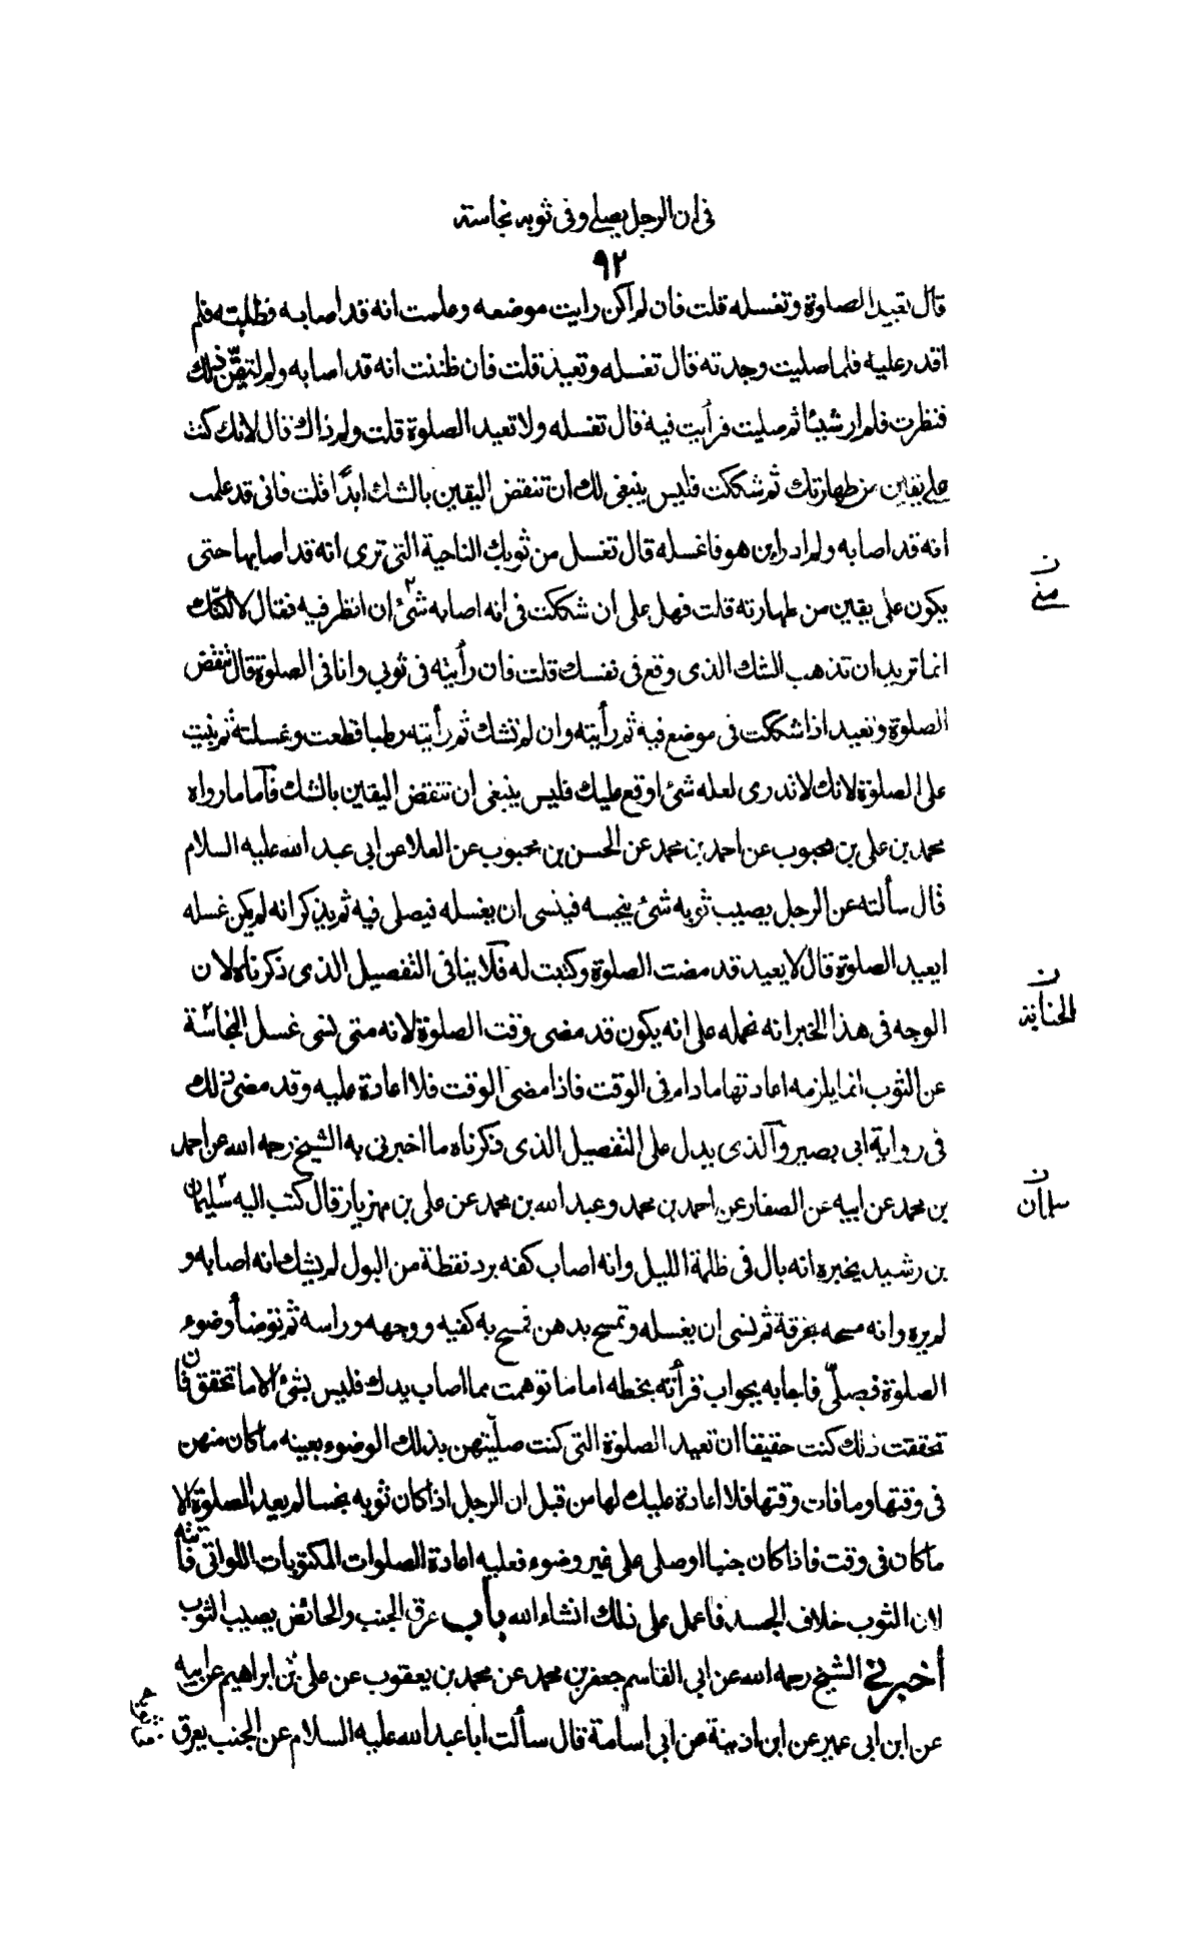 في ان الرجل يصلي وفي ثوبه نجاسته
٩٢
قال تعيد الصلوة وتغسله قلت فان لم اكن رايت موضعه وعلمت انه قد اصابه فطلبته فلم
اقدر عليه فلما صليت وجدته قال تغسله وتعيد قلت فان ظننت انه قد اصابه ولم اتيقن ذلك
فنظرت فلم ار شيئا ثم صليت فرأيت فيه قال تغسله ولا تعيد الصلوة قلت ولم ذاك قال لانك كنت
على يقين من طهارتك ثم شككت فليس ينبغي لك ان تنقض اليقين بالشك ابدًا قلت فاني قد علمت
انه قد اصابه ولم ادر اين هو فاغسله قال تغسل من ثوبك الناحية التي ترى انه قد اصابها حتى
يكون على يقين من طهارته قلت فهل على ان شككت في انه اصابه شئ ان انظر فيه فقال لا لكنك
انما تريد ان تذهب الشك الذي وقع في نفسك قلت فان رأيته في ثوبي وانا في الصلوة قال تنقض
الصلوة وتعيد اذا شككت في موضع فيه ثم رأيته وان لم تشك ثم رأيته رطبا قطعت وغسلته ثم بنيت
على الصلوة لانك لا تدري لعله شئ اوقع عليك فليس ينبغي ان تنقض اليقين بالشك فآما ما رواه
محمد بن علي بن محبوب عن احمد بن محمد عن الحسن بن محبوب عن العلا عن ابي عبد الله عليه السلام
قال سألته عن الرجل يصيب ثوبه شئ ينجسه فينسى ان يغسله فيصلي فيه ثم يذكر انه لم يكن غسله
ايعيد الصلوة قال لا يعيد قد مضت الصلوة وكتبت له فلآ ينافي التفصيل الذي ذكرناه لان
الوجه في هذا الخبر انه نحمله على انه يكون قد مضى وقت الصلوة لانه متى نسى غسل النجاسة
عن الثوب انما يلزمه اعادتها ما دام في الوقت فاذا مضى الوقت فلا اعادة عليه وقد مضى ذلك
في رواية ابي بصير وآلذي يدل على التفصيل الذي ذكرناه ما اخبرني به الشيخ رحمه الله عن احمد
بن محمد عن ابيه عن الصفار عن احمد بن محمد وعبد الله بن محمد عن علي بن مهزيار قال كتب اليه سليمان
بن رشيد يخبره انه بال في ظلمة الليل وانه اصاب كفه برد نقطة من البول لم يشك انه اصابه و
لم يره وانه مسحه بخرقة ثم نسى ان يغسله وتمسح بدهن فمسح به كفيه ووجهه وراسه ثم توضأ وضوء
الصلوة فصلّى فاجابه بجواب قرأته بخطه اما ما توهمت مما اصاب يدك فليس بشئ الا ما تحقق فان
تحققت ذلك كنت حقيقا ان تعيد الصلوة التي كنت صليتهن بذلك الوضوء بعينه ما كان منهن
في وقتها وما فات وقتها فلا اعادة عليك لها من قبل ان الرجل اذا كان ثوبه نجسا لم يعد الصلوة الا
ما كان في وقت فاذا كان جنبا او صلى على غير وضوء فعليه اعادة الصلوات المكتوبات اللواتي فاتته
لان الثوب خلاف الجسد فاعمل على ذلك انشاء الله باب عرق الجنب والحائض يصيب الثوب
أخبرني الشيخ رحمه الله عن ابي القاسم جعفر بن محمد عن محمد بن يعقوب عن علي بن ابراهيم عن ابيه
عن ابن ابي عمير عن ابن اذينة عن ابي اسامة قال سألت ابا عبد الله عليه السلام عن الجنب يعرق
ن
مني
ن
الجنابة
ن
سلمان